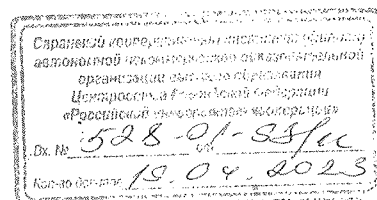 Саранский кооперативный институт (филиал)
автономной некоммерческой образовательной
организации высшего образования
Центросоюза Российской Федерации
«Российский университет кооперации»
Вх. № 528-01-
19.04.2023